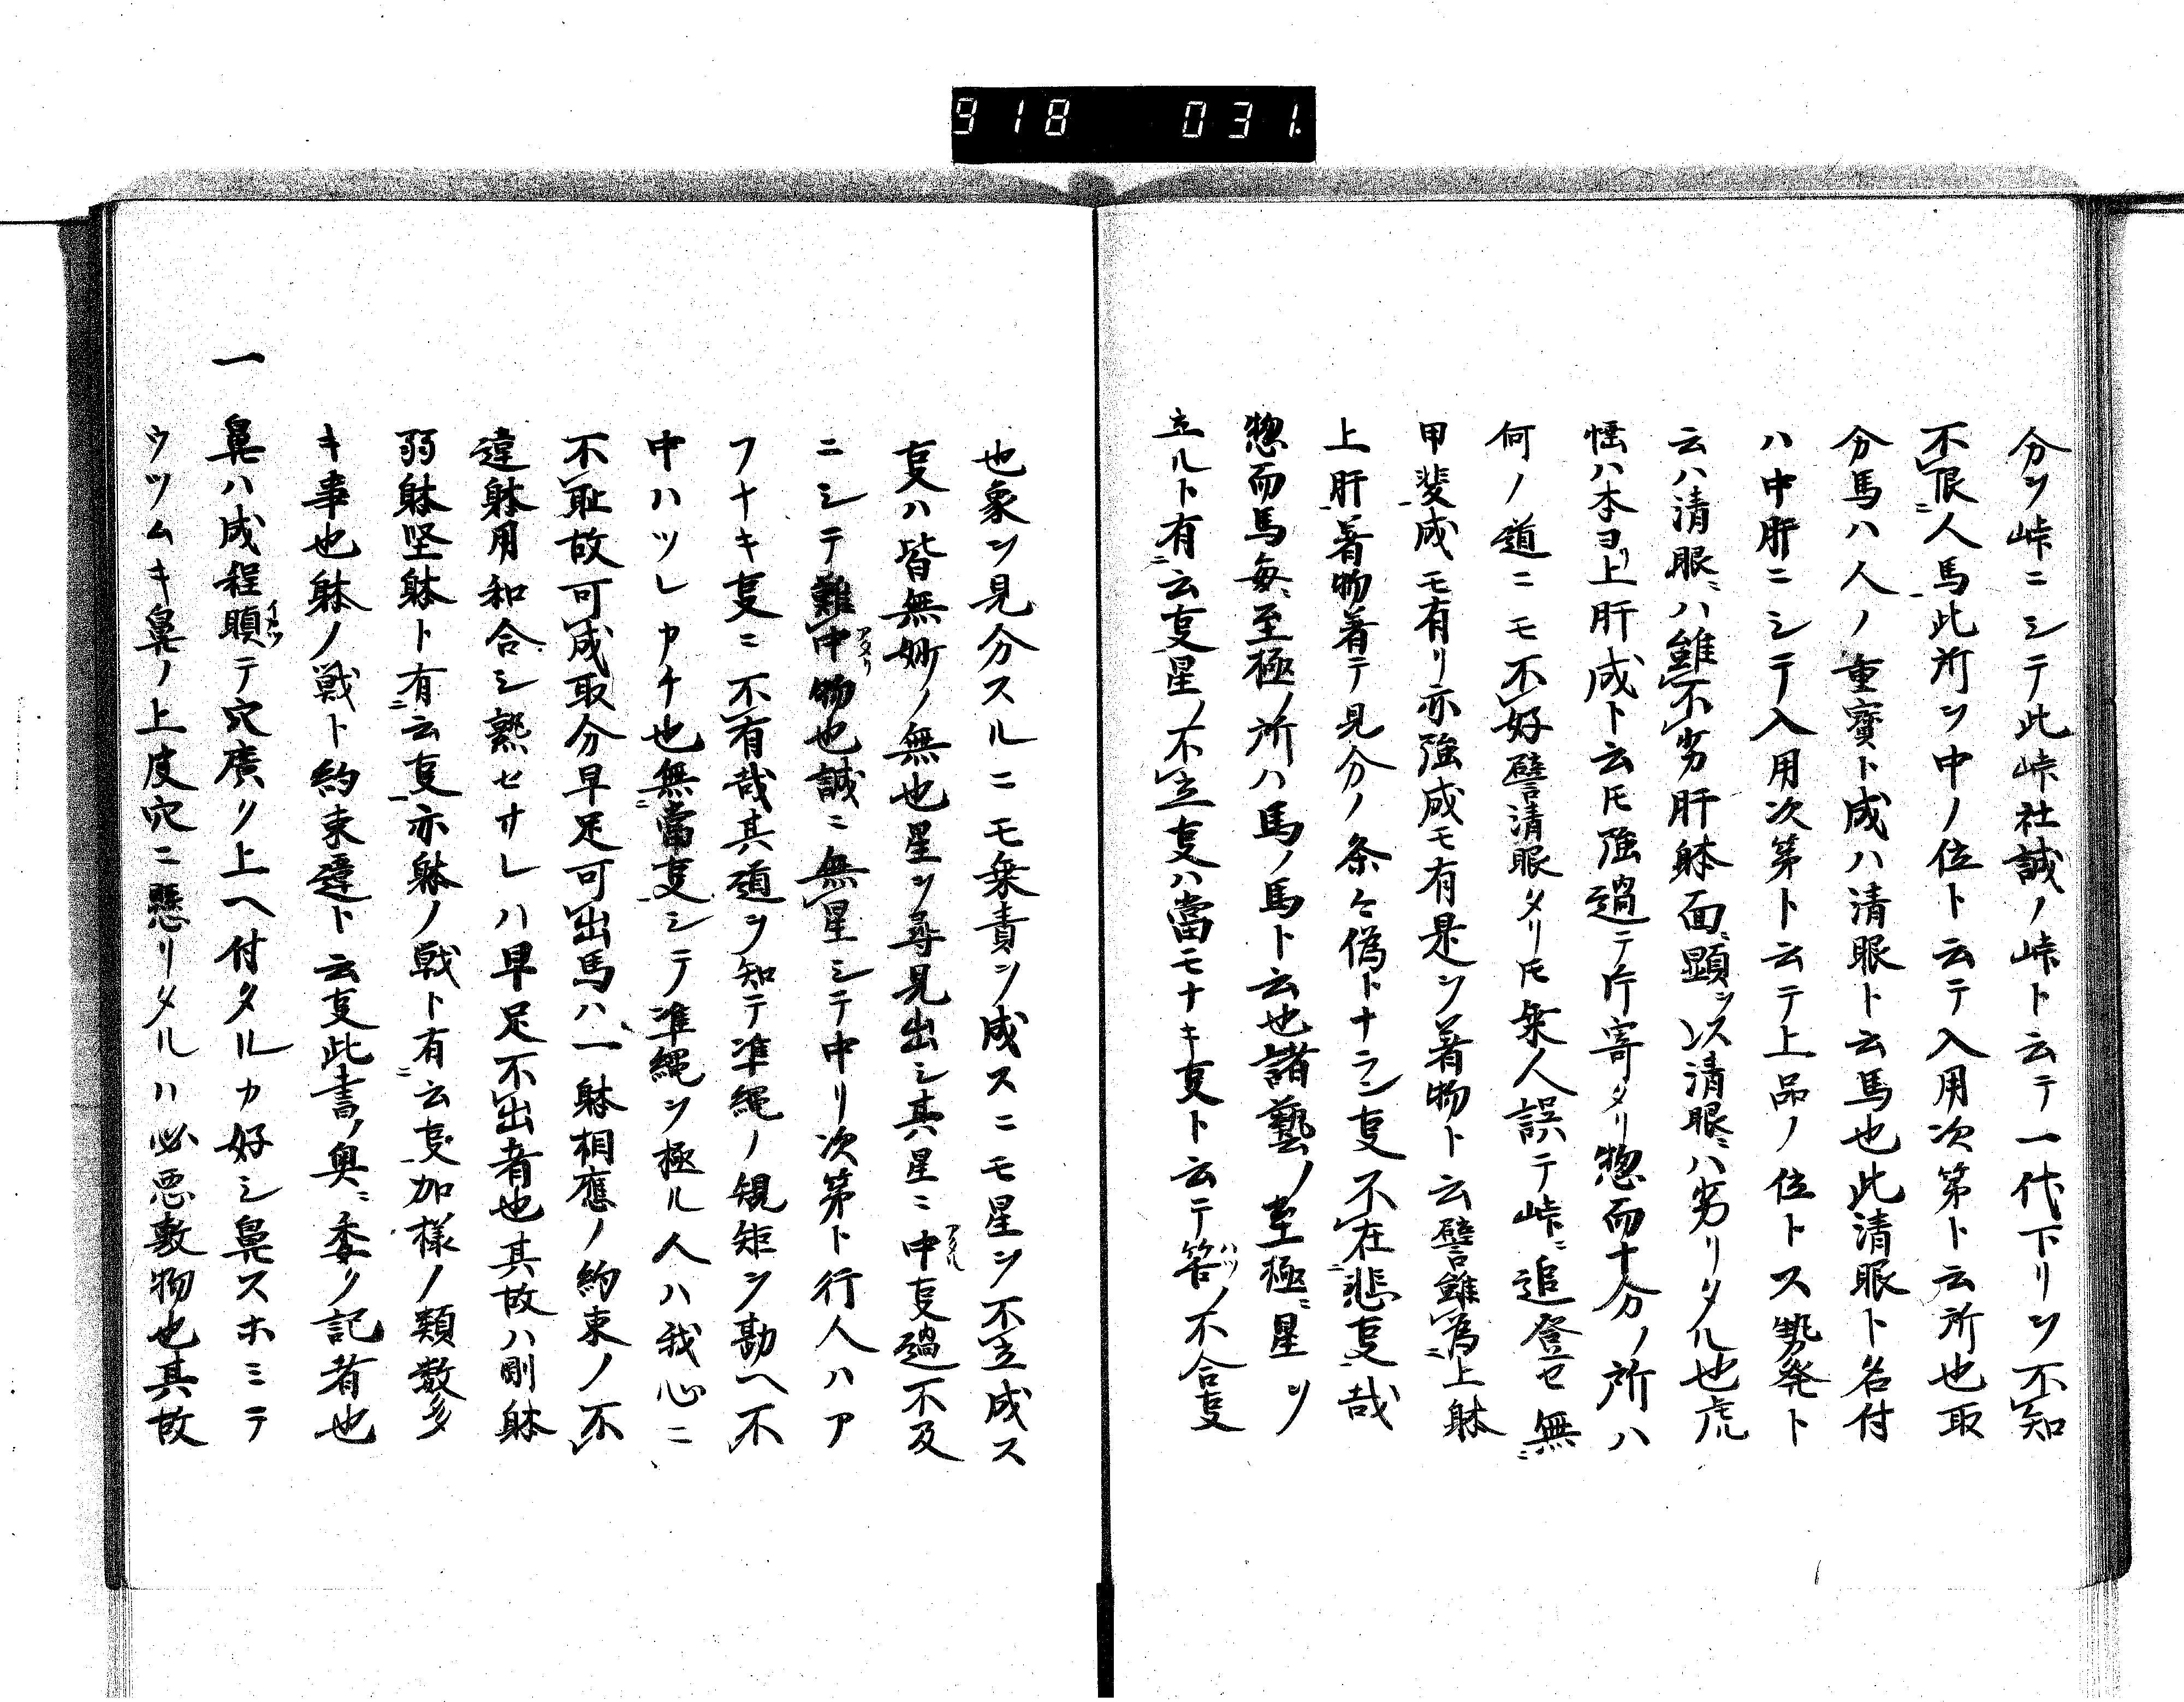 918 031.
分ン峠ニシテ此峠社誠ノ峠ト云テ一代下リン不知
不限人馬此所ン中ノ位ト云テ入用次第ト云所也取
分馬ハ人ノ重寳ト成ハ清眼ト云馬也此清眼ト名付
ハ中肝ニシテ入用次第ト云テ上品ノ位トス勢発ト
云ハ清眼ニハ雖不劣肝躰面ニ顕ンス清眼ニハ劣リタル也虎
恠ハ本ヨリ上肝成ト云トモ強過テ片寄タリ惣而十分ノ所ハ
何ノ道ニモ不好譬清眼タリトモ乗人誤テ峠ニ追登セ無
甲斐成モ有リ亦強成モ有是ン著物ト云譬雖為上躰
上肝著物著テ見分ノ条々偽トナラン㕝不在悲㕝哉
惣而馬毎ニ至極ノ所ハ馬ノ馬ト云也諸藝ノ至極ニ星ン
立ルト有云㕝星ノ不立㕝ハ當モナキ㕝ト云テ筈ノ不合㕝
也象ン見分スルニモ乗責ン成スニモ星ン不立成ス
㕝ハ皆無妙ノ無也星ン尋見出シ其星ニ中㕝過不及
ニシテ難中物也誠ニ無星シテ中リ次第ト行人ハア
フナキ㕝ニ不有哉其道ヲ知テ準縄ノ規矩ン勘ヘ不
中ハツレカチ也無當㕝シテ準縄ン極ル人ハ我心ニ
不恥故可成取分早足可出馬ハ一躰相應ノ約束ノ不
違躰用和合シ熟セサレハ早足不出者也其故ハ剛躰
弱躰堅躰ト有云㕝亦躰ノ戦ト有云㕝加様ノ類数多
キ事也躰ノ戦ト約束違ト云㕝此書ノ奥ニ委ク記者也
一 鼻ハ成程順テ穴廣ク上ヘ付タルカ好シ鼻スホミテ
ウツムキ鼻ノ上皮穴ニ懸リタルハ必悪敷物也其故